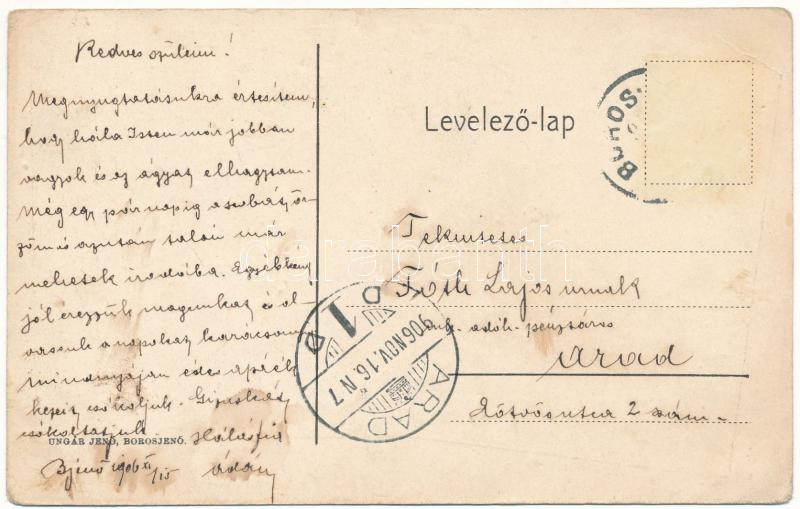 Kedves szüleim!
Megnyugtatásukra értesítem,
hogy hála Isten már jobban
vagyok és az ágyat elhagytam.
Még egy pár napig a szobát őr-
zöm és azután talán már
mehetek irodába. Egyébként
jól érezzük magunkat és ol-
vassuk a napokat karácsony
mindnyájan édes apáék
kezeit csókoljuk.
csókoltatjuk. Hálásfia
Ádám
Bjenő 1906 XI/15
UNGÁR JENŐ, BOROSJENŐ.
Levelező-lap
BOROS
Tekintetes
Tóth Lajos urnak
adóh. pénztáros
Arad
2 szám.
ARAD
906 NOV. 16. N 7
1 D
darabanth